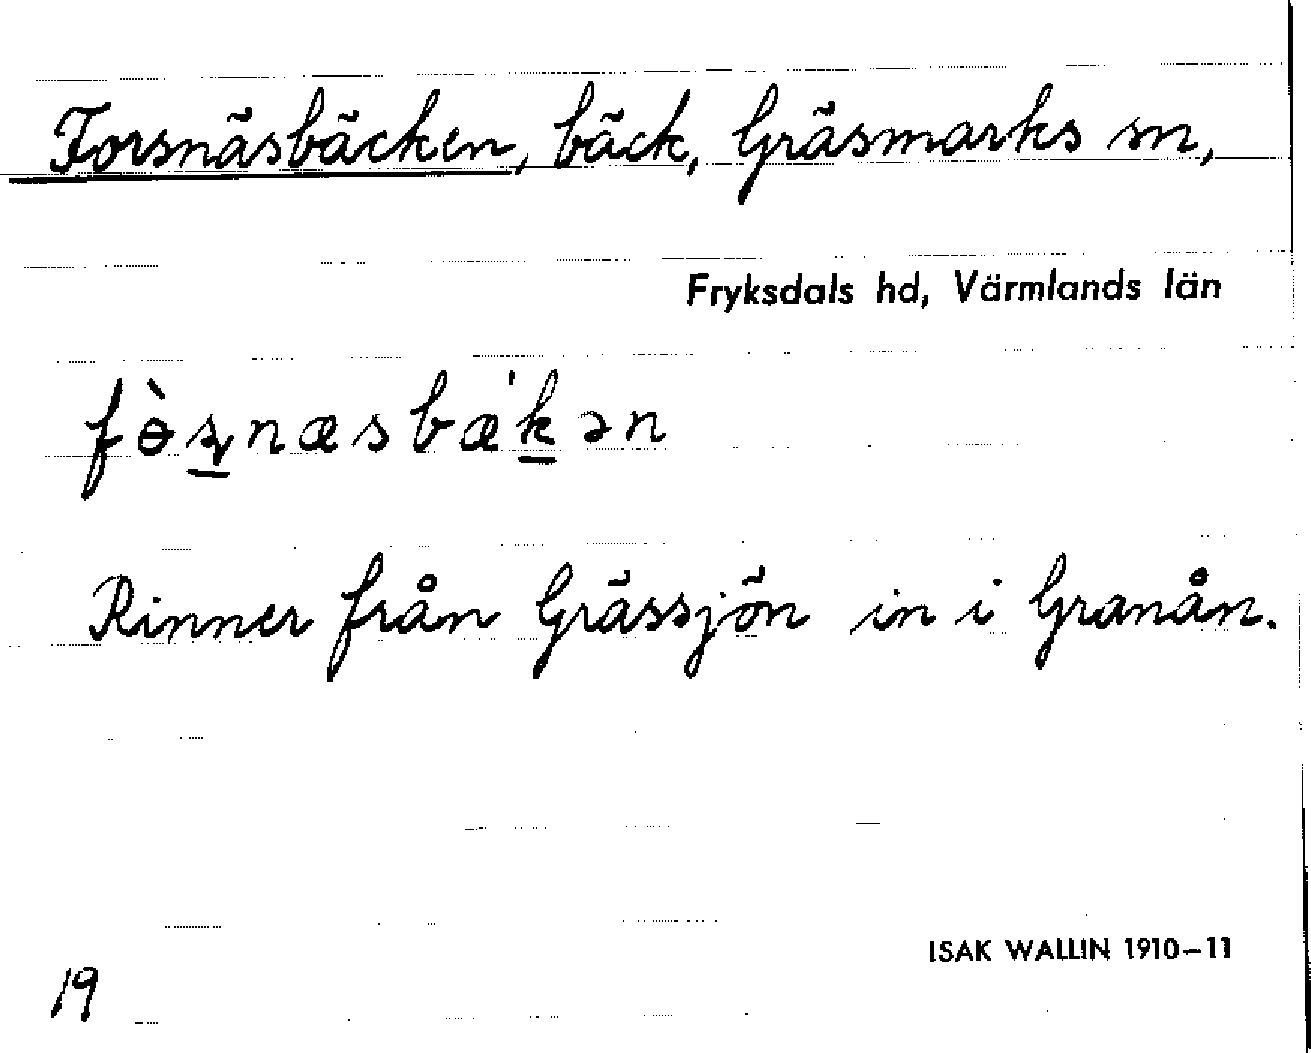 Forsnäsbäcken, bäck, Gräsmarks sn,
Fryksdals hd, Värmlands län
fɵ̀ʂnæsbæ'kən
Rinner från Grässjön in i Granån.
ISAK WALLIN 1910–11
19